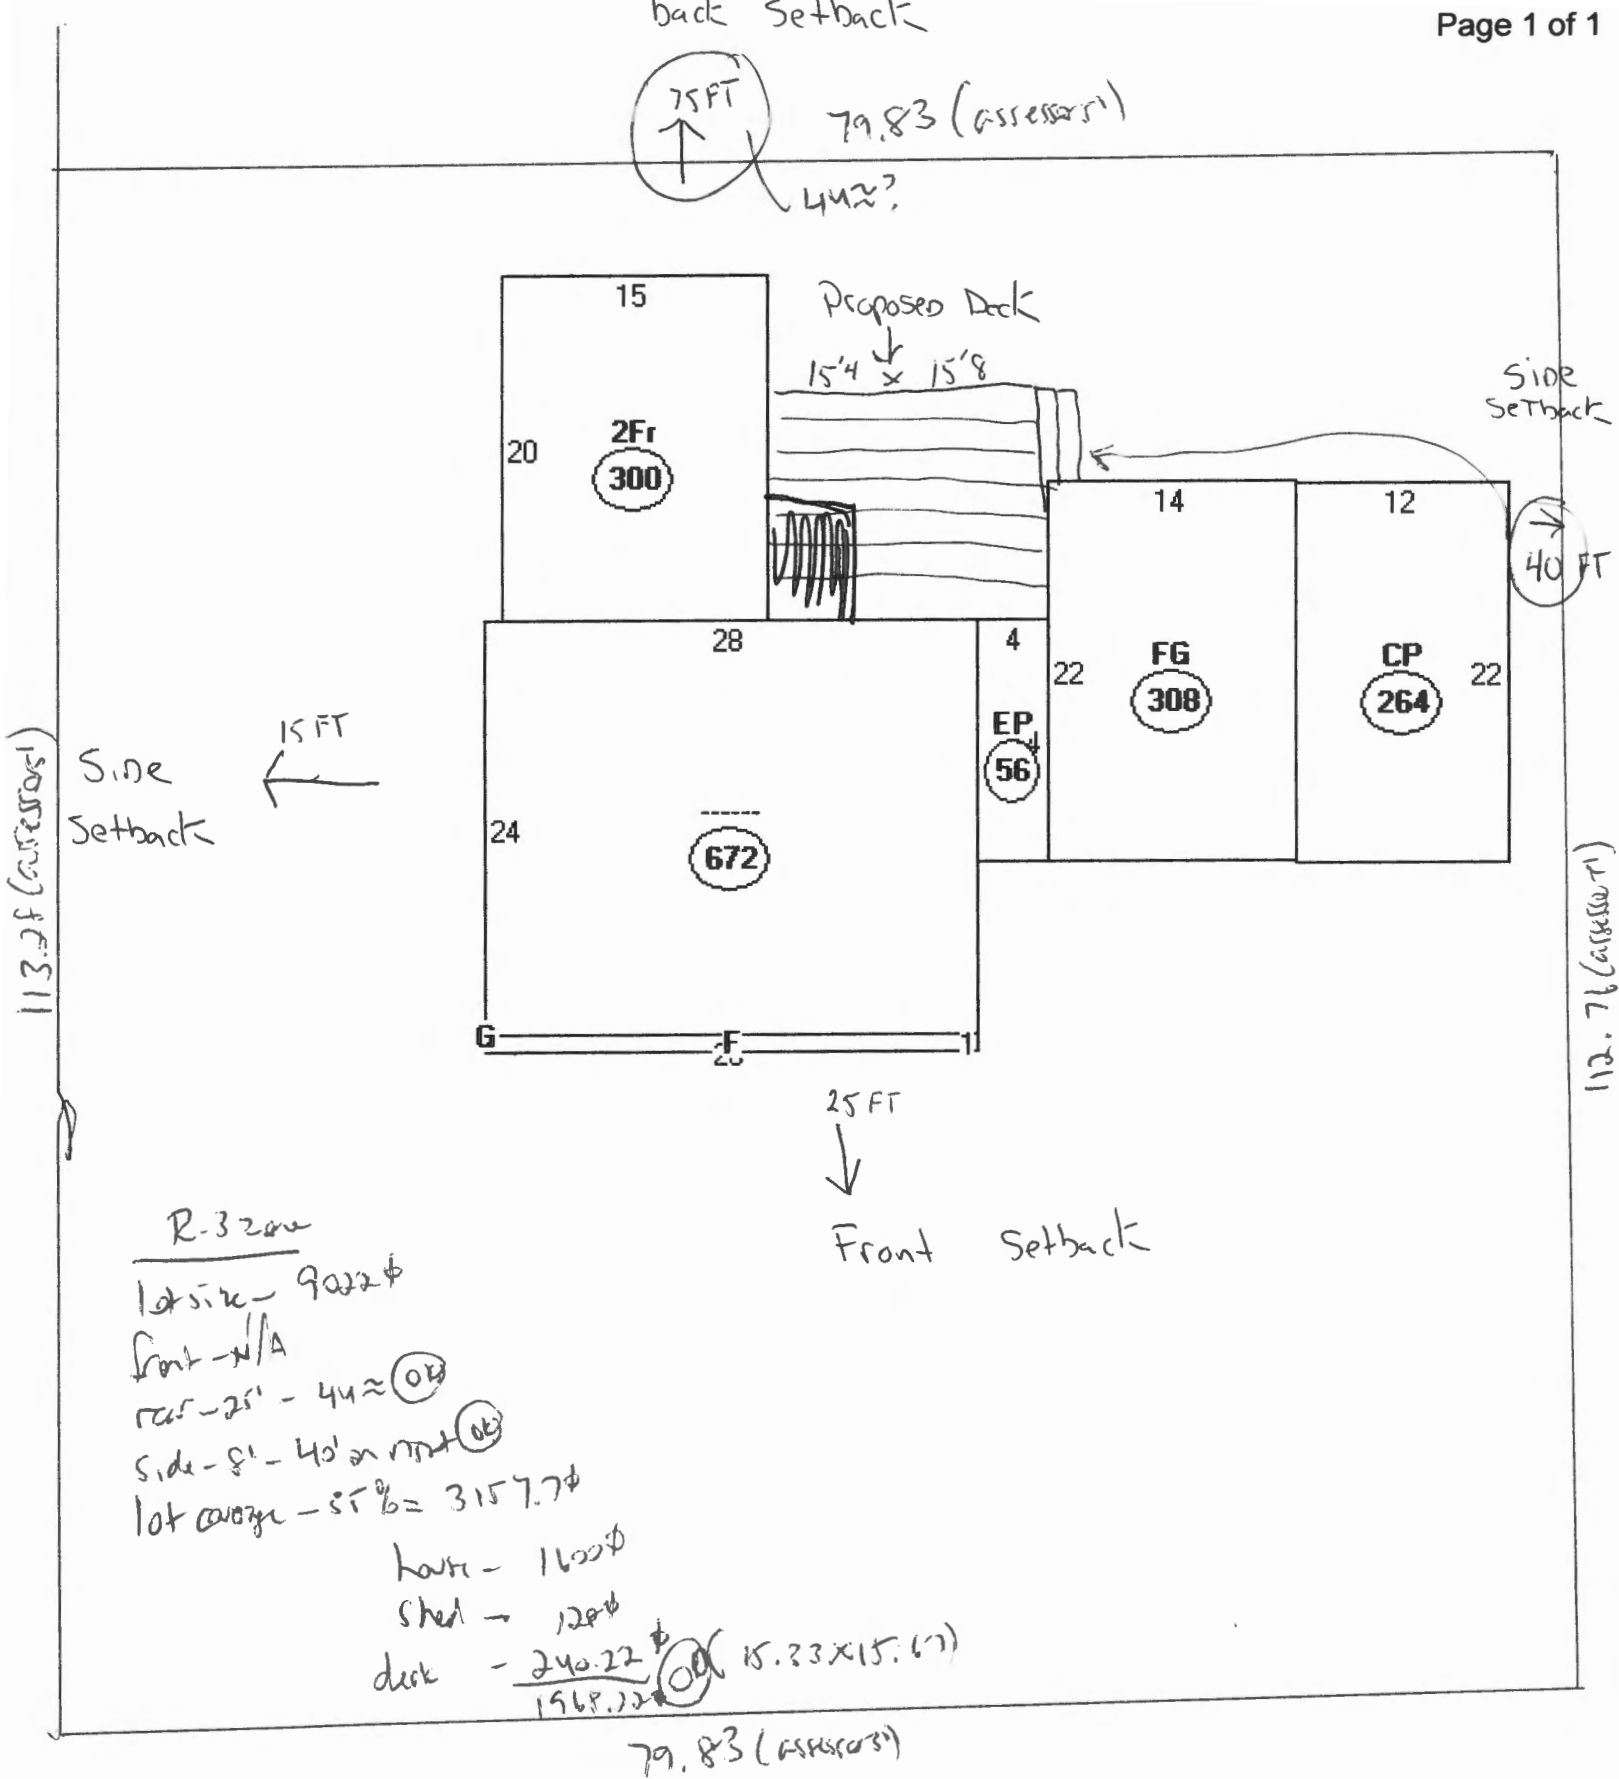 back Setback
Page 1 of 1
75FT
79.83 (assessors')
44≈?
Proposed Deck
15'4 x 15'8
Side
Setback
15
20
2Fr
300
14
12
40 FT
28
4
22
FG
308
CP
264
22
EP
4
56
15 FT
Side
Setback
24
672
113.25 (assessors')
112.76 (assessors')
G
F
1
25 FT
Front Setback
R-3 zone
lot size - 9022
front - N/A
rear - 25' - 44≈ OK
side - 8' - 40' on right OK
lot coverage - 35% = 3157.7
house - 1600
shed - 128
deck - 240.22 OK (15.33x15.67)
1968.22
79.83 (assessors')